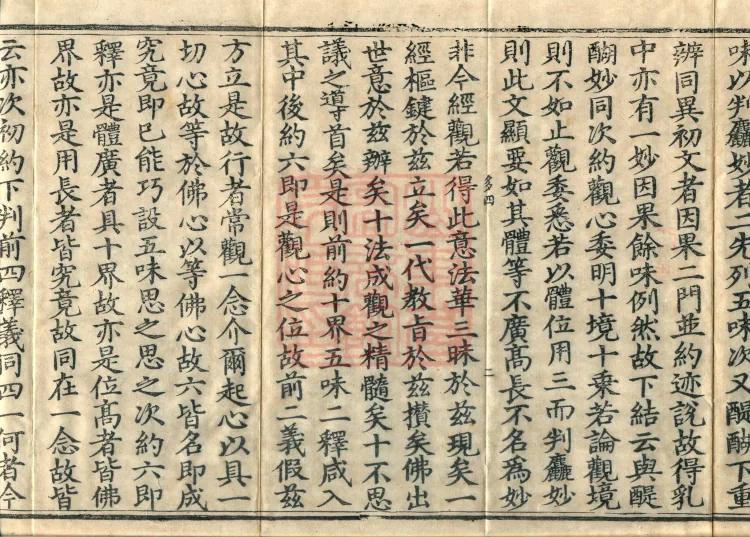 味以判麤妙者二先列五味次又醍醐下重
辨同異初文者因果二門並約迹說故得乳
中亦有一妙因果餘味例然故下結云與醍
醐妙同次約觀心委明十境十乘若論觀境
則不如止觀委悉若以體位用三而判麤妙
則此文顯要如其體等不廣高長不名為妙
非今經觀若得此意法華三昧於茲現矣一
經樞鍵於茲立矣一代教旨於茲攢矣佛出
世意於茲辦矣十法成觀之精髓矣十不思
議之導首矣是則前約十界五味二釋咸入
其中後約六即是觀心之位故前二義假茲
方立是故行者常觀一念介爾起心以具一
切心故等於佛心以等佛心故六皆名即成
究竟即已能巧設五味思之思之次約六即
釋亦是體廣者具十界故亦是位高者皆佛
界故亦是用長者皆究竟故同在一念故皆
云亦次初約下判前四釋義同四一何者今